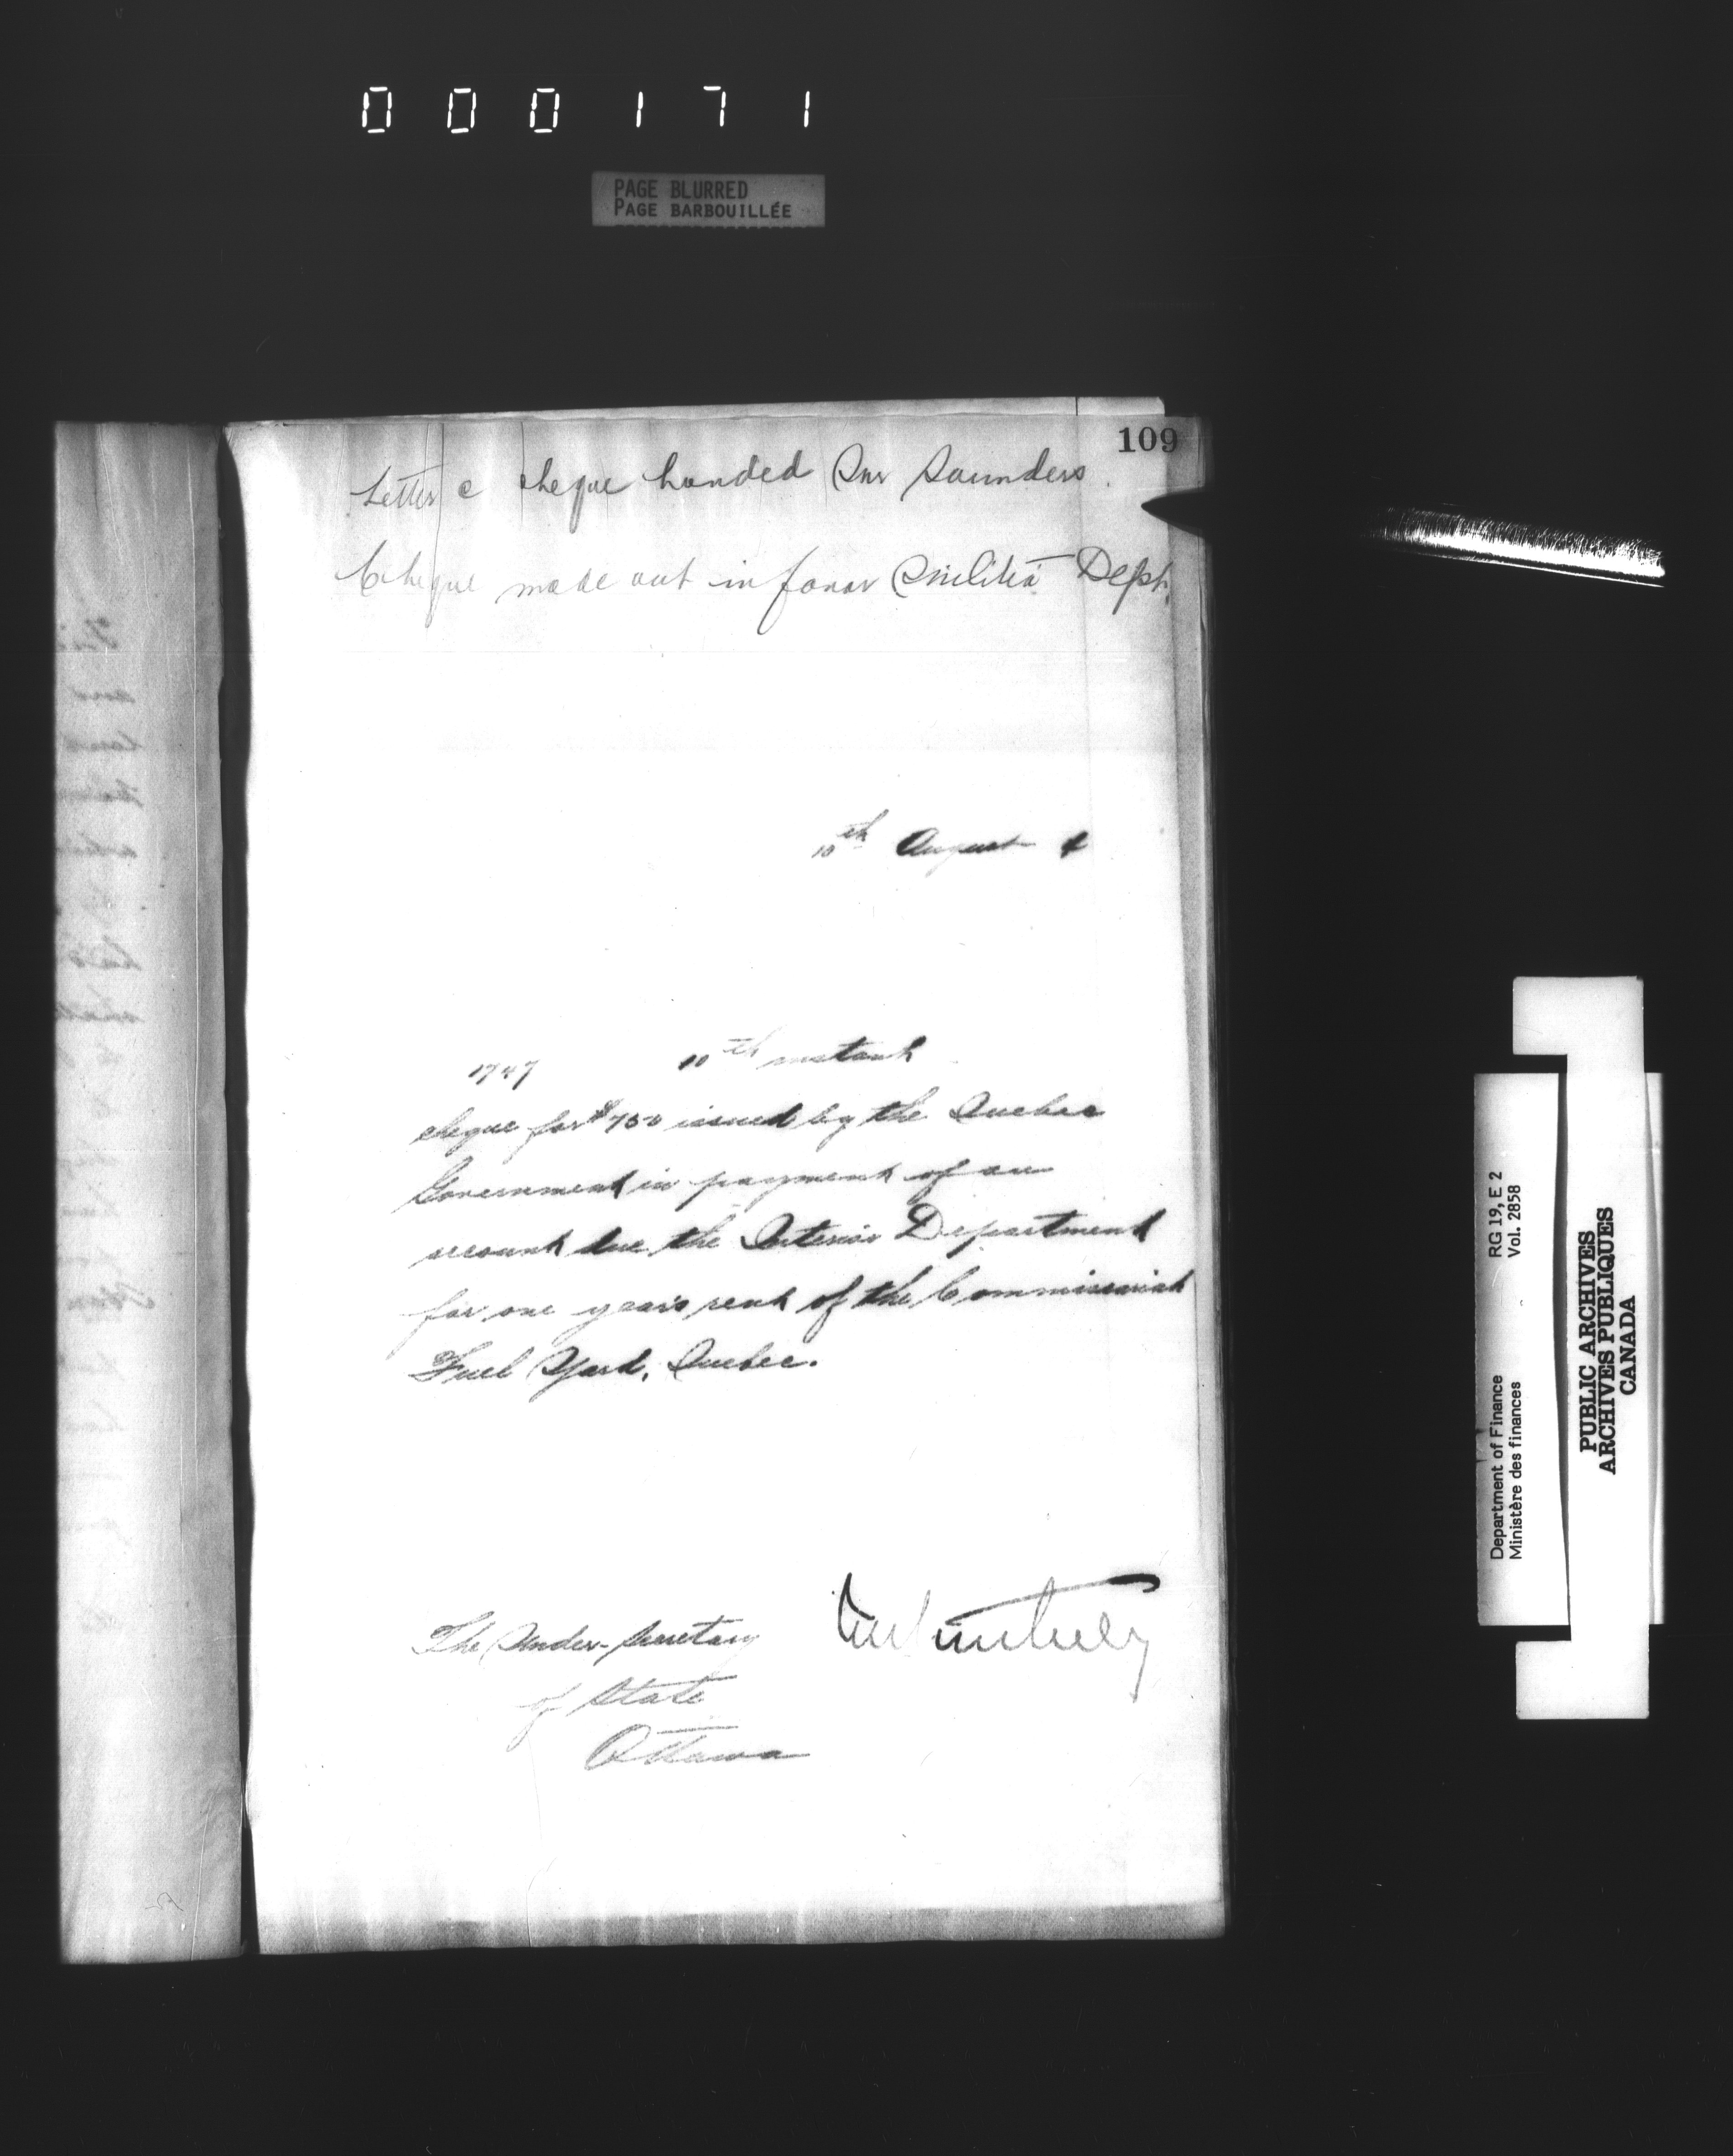 000171
PAGE BLURRED
PAGE BARBOUILLÉE
109
Letter & cheque handed Mr Saunders.
Cheque made out in favor Militia Dept.
10th August 4
1747 10th instant
cheque for $750 issued by the Quebec
Government in payment of an
account due the Interior Department
for one year's rent of the Commissariat
Fuel Yard, Quebec.
The Under-Secretary
of State
Ottawa
Department of Finance RG 19, E 2
Ministère des finances Vol. 2858
PUBLIC ARCHIVES
ARCHIVES PUBLIQUES
CANADA